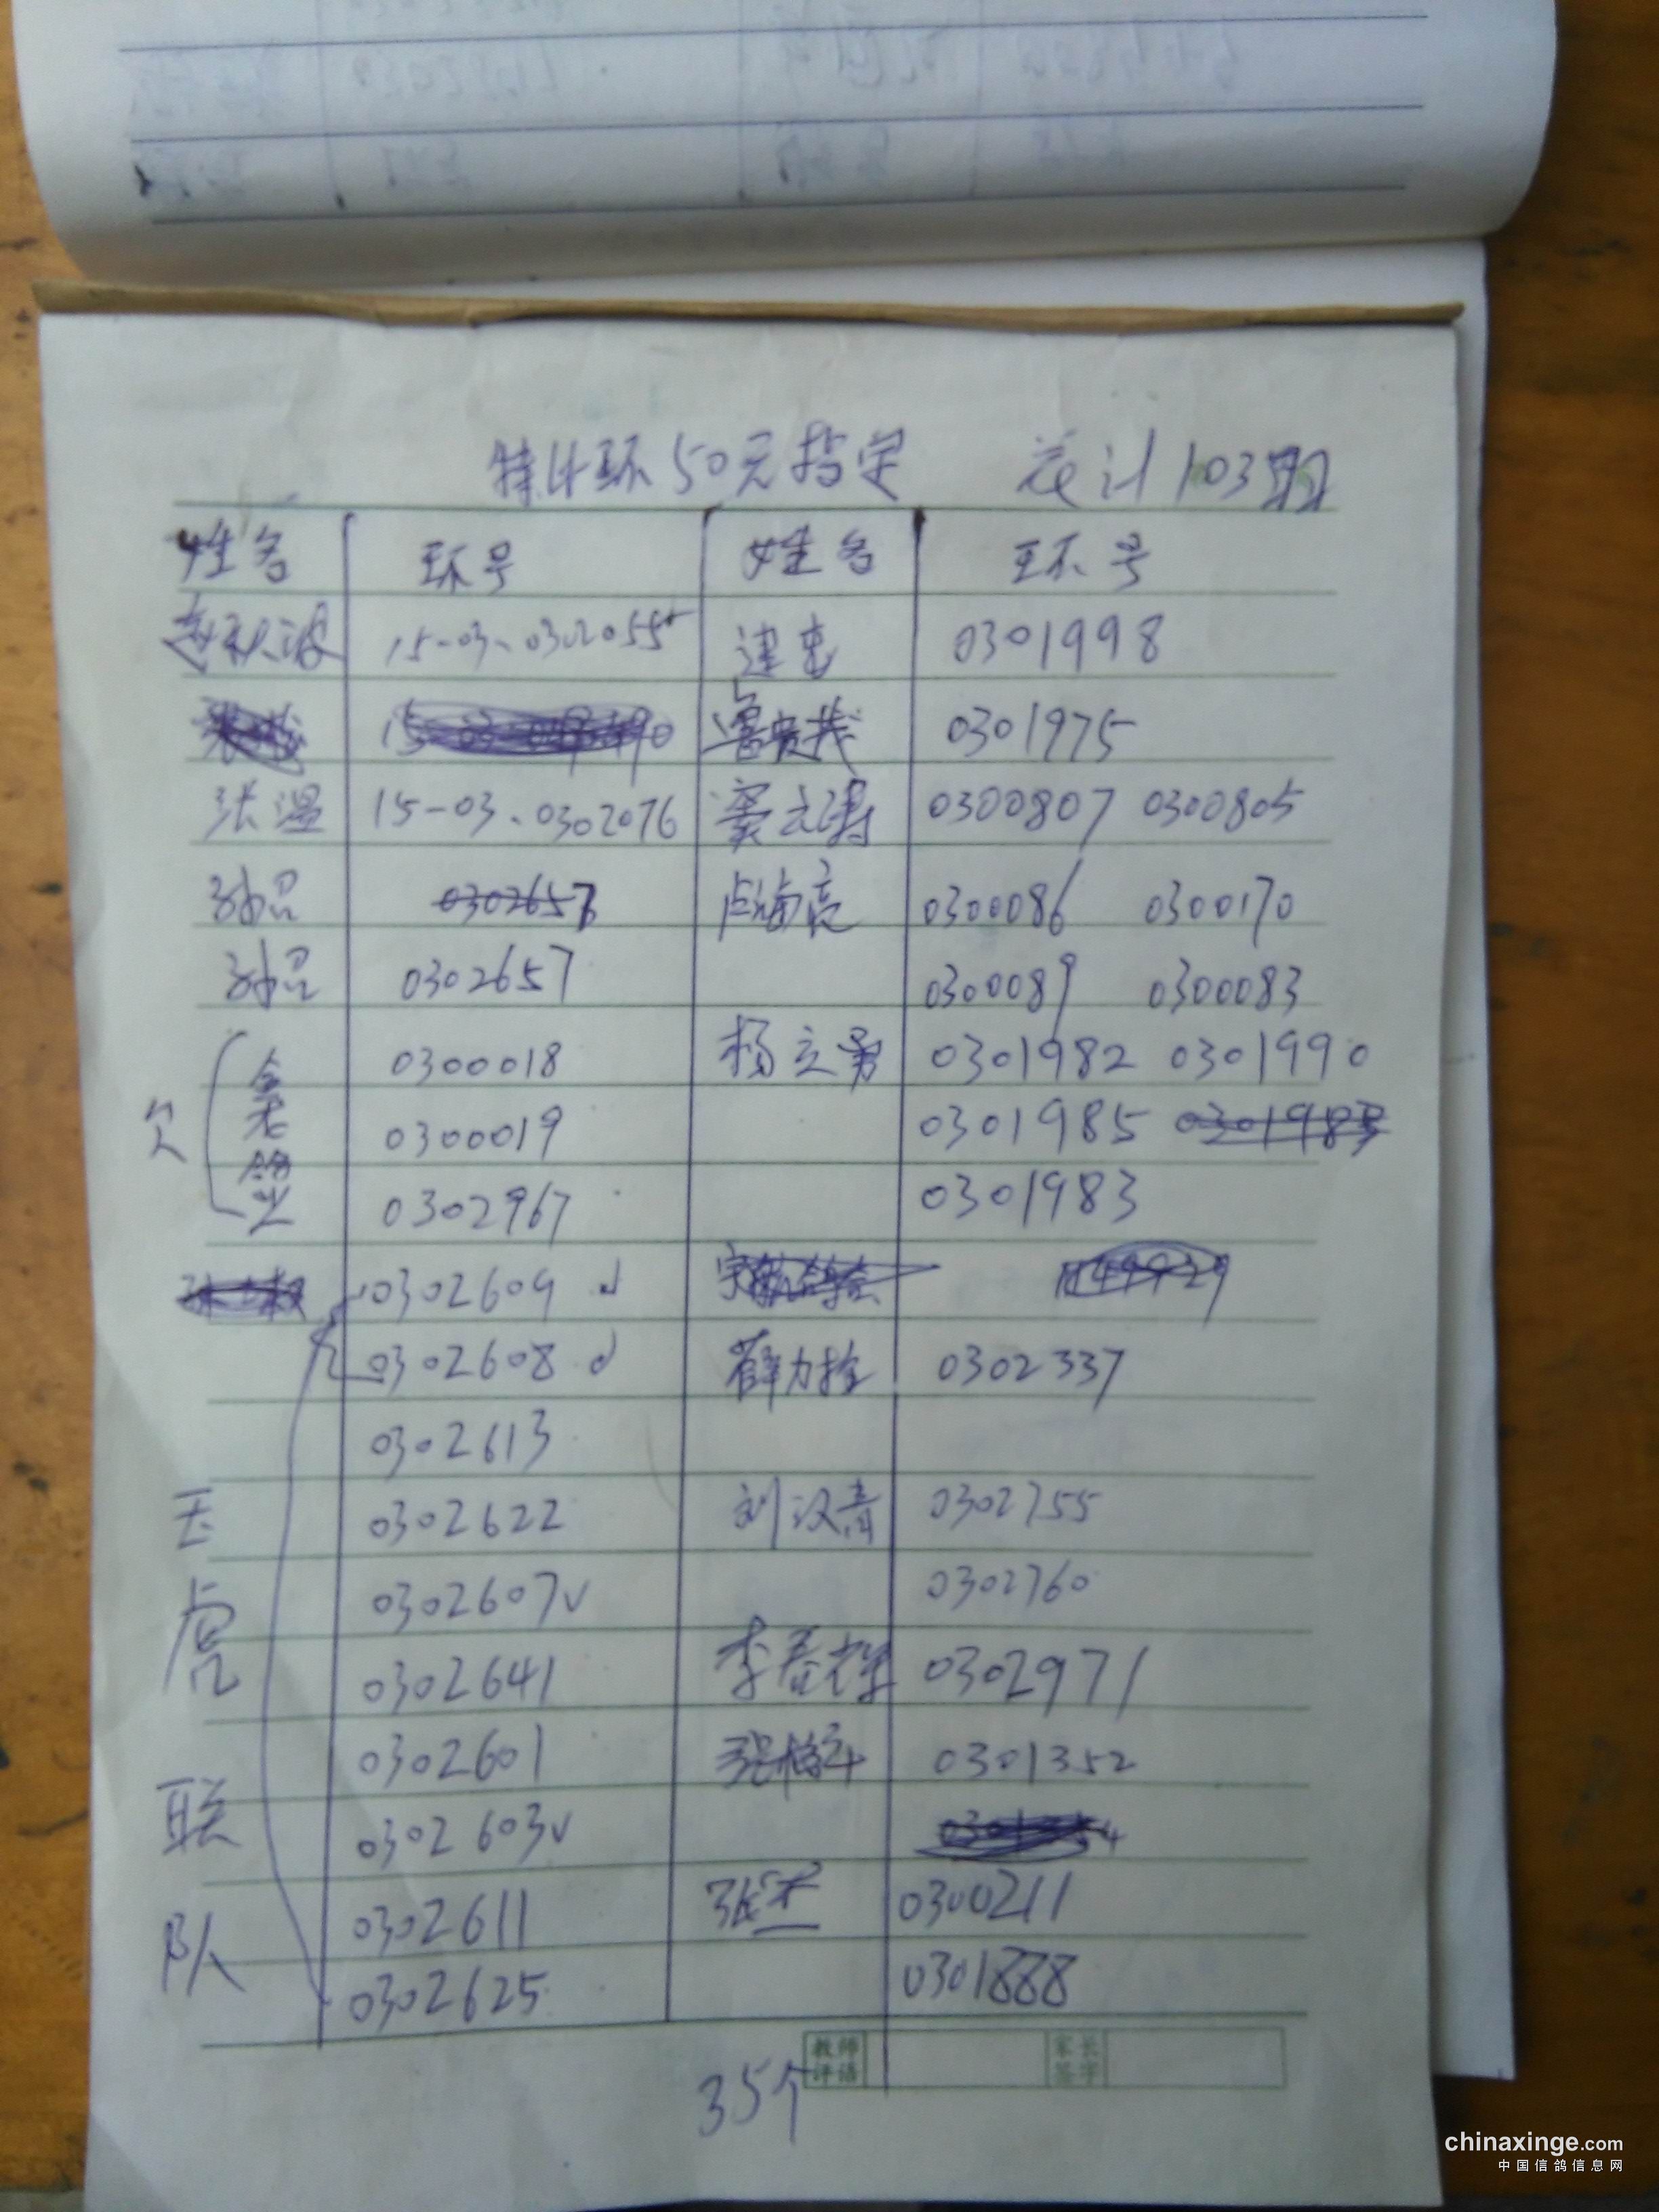 特比环50元指定 总计103羽
姓名 环号 姓名 环号
赵秋波 15-03-0302055 建忠 0301998
鲁贵茂 0301975
张温 15-03-0302076 窦立涛 0300807 0300805
孙品 0302657 卢海亮 0300086 0300170
孙品 0302657 0300089 0300083
欠 金老鸽业 0300018 杨立勇 0301982 0301990
0300019 0301985 0301983
0302967 0301983
0302609
0302608 薛力拴 0302337
0302613
王虎联队 0302622 刘汉青 0302755
0302607 0302760
0302641 李春辉 0302971
0302601 0301352
0302603
0302611 张杰 0300211
0302625 0301888
教师评语 家长签字
35个
chinaxinge.com
中国信鸽信息网